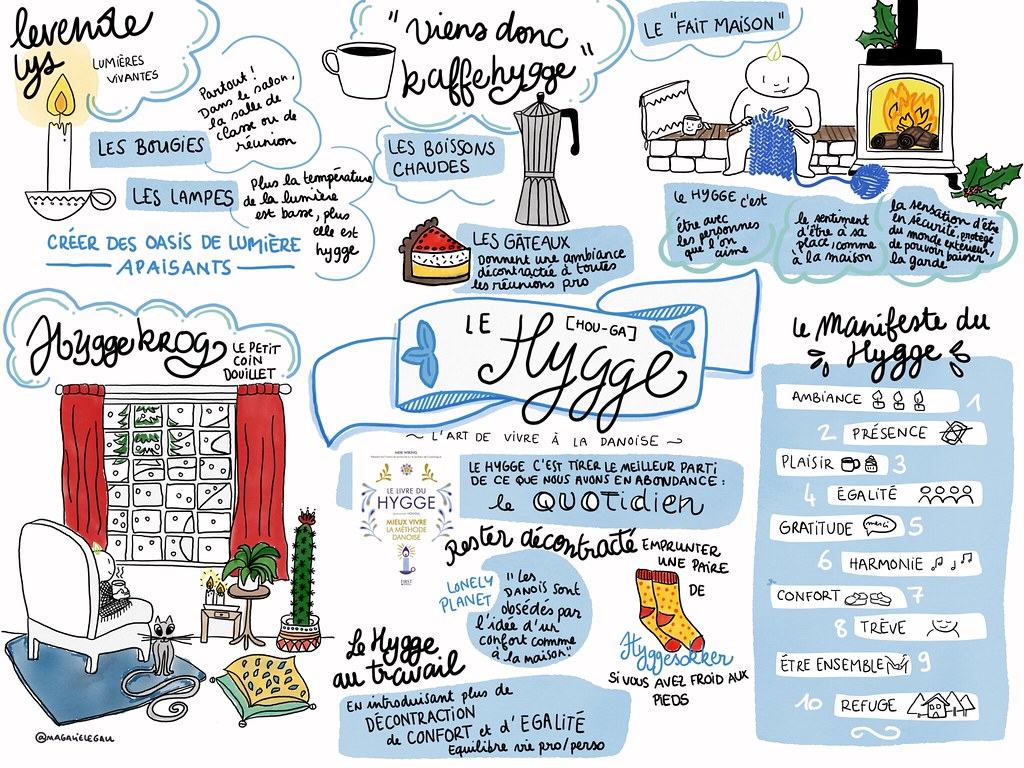 levende
lys
LUMIÈRES
VIVANTES
Partout!
Dans le salon,
la salle de
classe ou de
réunion
LES BOUGIES
LES LAMPES
Plus la température
de la lumière
est basse, plus
elle est
hygge
CRÉER DES OASIS DE LUMIÈRE
APAISANTS
"viens donc
kaffehygge"
LES BOISSONS
CHAUDES
LES GÂTEAUX
Donnent une ambiance
décontractée à toutes
les réunions pro
LE "FAIT MAISON"
LE HYGGE C'est
être avec
les personnes
que l'on
aime
le sentiment
d'être à sa
place, comme
à la maison
la sensation d'être
en sécurité, protégé
du monde extérieur,
de pouvoir baisser
la garde
Hyggekrog
LE PETIT
COIN
DOUILLET
@MAGALIELEGALL
LE [HOU-GA]
Hygge
~ L'ART DE VIVRE À LA DANOISE ~
MEIK WIKING
LE LIVRE DU
HYGGE
MIEUX VIVRE
LA MÉTHODE
DANOISE
FIRST
LE HYGGE C'EST TIRER LE MEILLEUR PARTI
DE CE QUE NOUS AVONS EN ABONDANCE :
le QUOTidien
Rester décontracté
LONELY
PLANET
"Les
DANOIS sont
obsédés par
l'idée d'un
confort comme
à la maison."
EMPRUNTER
UNE PAIRE
DE
Hyggesokker
SI VOUS AVEZ FROID AUX
PIEDS
Le Hygge
au travail
EN introduisant plus de
DÉCONTRACTION
de CONFORT et d'EGALITÉ
Equilibre vie pro/perso
Le Manifeste du
Hygge
AMBIANCE 1
2 PRÉSENCE
PLAISIR 3
4 ÉGALITÉ
GRATITUDE merci 5
6 HARMONIE
CONFORT 7
8 TRÊVE
ÊTRE ENSEMBLE 9
10 REFUGE